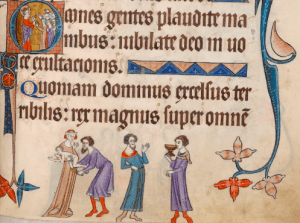 Omnes gentes plaudite ma
nibus: iubilate deo in uo
ce exultacionis.
Quoniam dominus excelsus ter
ribilis: rex magnus super omnē